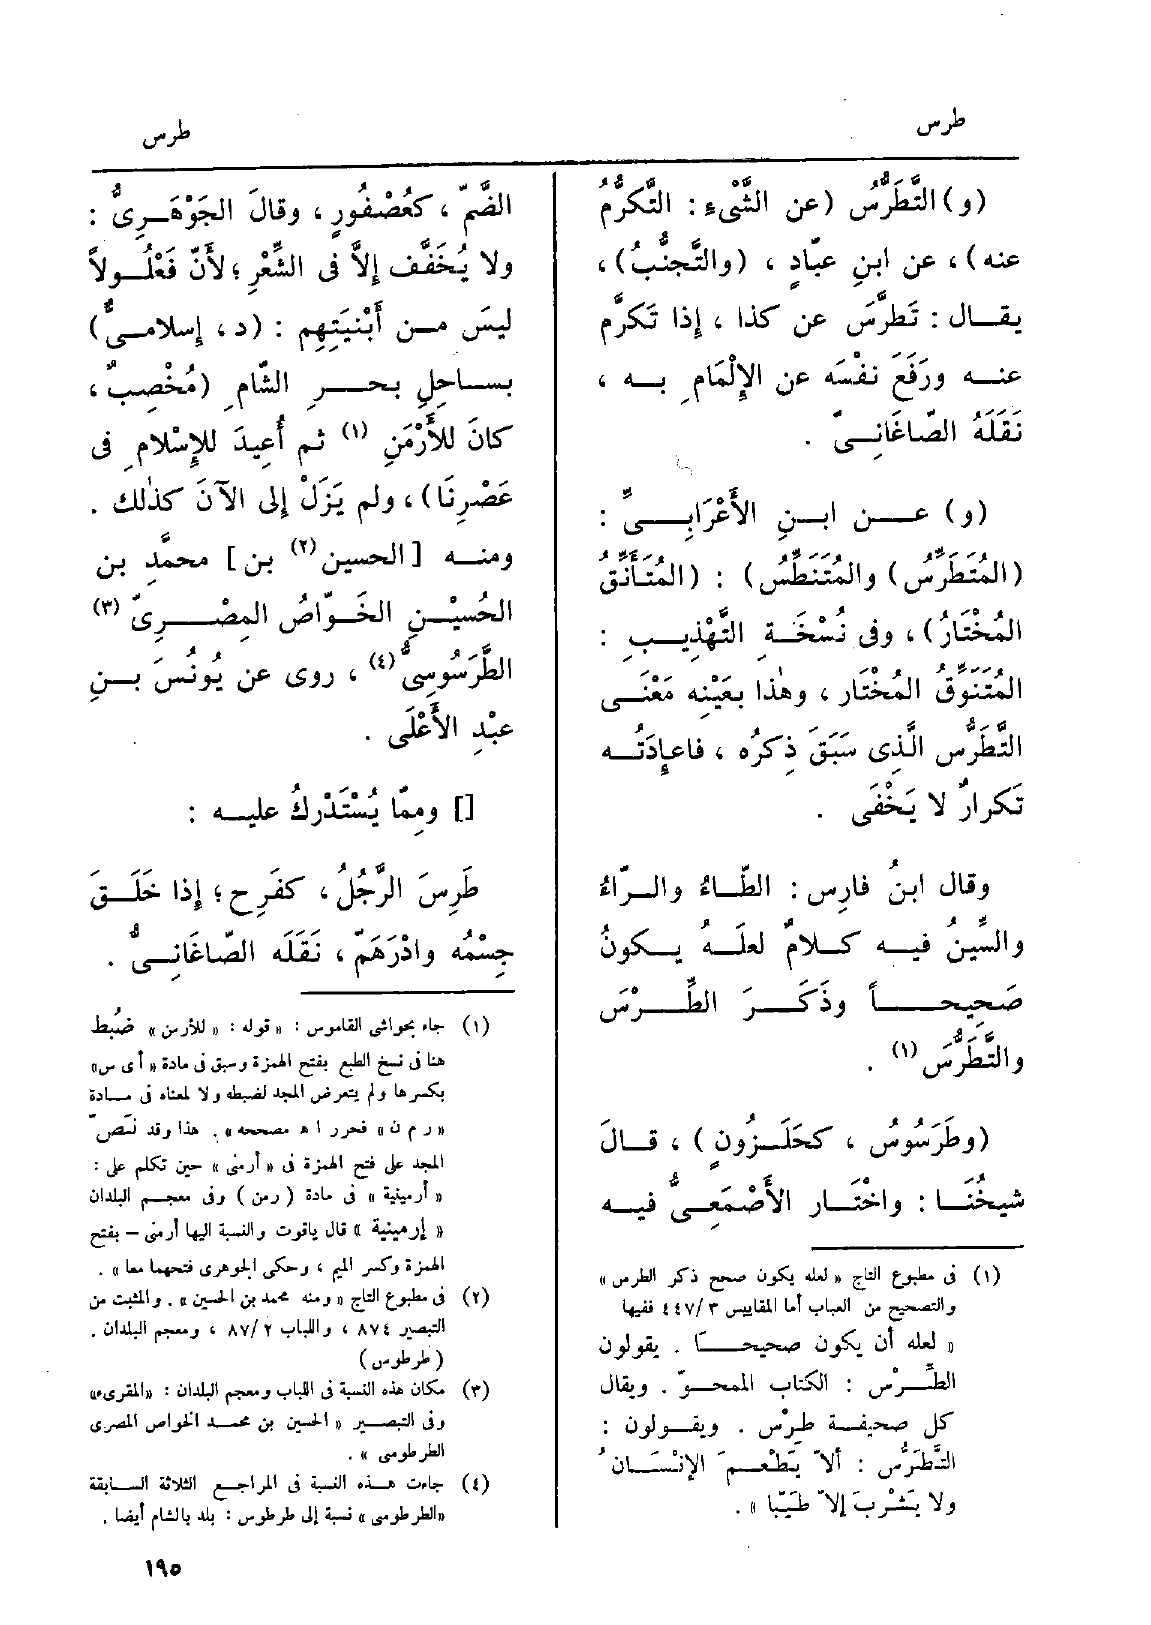 طرس
طرس
(و) التَّطَرُّسُ (عن الشَّىْءِ: التَّكَرُّمُ
عنه)، عن ابنِ عبّادٍ، (والتَّجنُّبُ)،
يقال: تَطرَّسَ عن كذا، إذا تَكرَّم
عنه ورَفَعَ نفْسَه عن الإِلْمَامِ به،
نَقَلَهُ الصّاغَانِىّ.
(و) عن ابنِ الأَعْرَابِىِّ:
(المُتَطَرِّسُ) والمُتَنَطِّسُ): (المُتَأَنِّقُ
المُخْتَارُ)، وفى نُسْخَةِ التَّهْذِيبِ:
المُتَنَوِّقُ المُخْتَار، وهٰذا بعَيْنِه مَعْنَى
التَّطَرُّس الَّذِى سَبَقَ ذِكرُه، فاعِادَتُه
تَكرارٌ لا يَخْفَى.
وقال ابنُ فارِس: الطّاءُ والرّاءُ
والسِّينُ فيه كلامٌ لعلَهُ يكونُ
صَحِيحاً وذَكَرَ الطِّرْسَ
والتَّطَرُّسَ (١).
(وطَرَسُوسُ، كحَلَزُونٍ)، قالَ
شيخُنَا: واخْتَار الأَصْمَعِىُّ فيه
(١) فى مطبوع التاج «لعله يكون صحح ذكر الطرس»
والتصحيح من العباب أما المقاييس ٣/٤٤٧ ففيها
«لعله أن يكون صحيحاً. يقولون
الطِّرْس: الكتاب الممحوّ. ويقال
كل صحيفة طرْس. ويقولون:
التَّطرُّس: ألاّ يَطْعمَ الإنْسَانُ
ولا يَشْربَ إلاّ طيِّبا».
الضَّمّ، كعُصْفُورٍ، وقالَ الجَوْهَرِىُّ:
ولا يُخَفَّف إلاَّ فى الشِّعْرِ؛ لأَنّ فَعْلُولاً
ليسَ من أَبْنيَتِهِم: (د، إسلامىٌّ)
بساحِلِ بحرِ الشّامِ (مُخْصِبٌ،
كانَ للأَرْمَنِ (١) ثم أُعِيدَ للإِسْلامِ فى
عَصْرِنَا)، ولم يَزَلْ إلى الآنَ كذٰلك.
ومنه [الحسين (٢) بن] محمَّدِ بن
الحُسيْنِ الخَوّاصُ المِصْرِىّ (٣)
الطَّرَسُوسِىُّ (٤)، روى عن يُونُسَ بنِ
عبْدِ الأَعْلَى.
[] ومِمّا يُسْتَدْركُ عليه:
طَرِسَ الرَّجُلُ، كفَرِح؛ إذا خَلَقَ
جِسْمُه وادْرَهَمّ، نَقَلَه الصّاغَانِىُّ.
(١) جاء بحواشى القاموس: «قوله: «للأرمن» ضُبط
هنا فى نسخ الطبع بفتح الهمزة وسبق فى مادة «أى س»
بكسرها ولم يتعرض المجد لضبطه ولا لمعناه فى مادة
«رم ن» فحرر اه مصححه». هذا وقد نَصّ
المجد على فتح الهمزة فى «أرمنى» حين تكلم على:
«أرمينية» فى مادة (رمن) وفى معجم البلدان
«إرمينية» قال ياقوت والنسبة اليها أرمنى – بفتح
الهمزة وكسر الميم، وحكى الجوهرى فتحهما معا».
(٢) فى مطبوع التاج «ومنه محمد بن الحسين». والمثبت من
التبصير ٨٧٤، واللباب ٢/٨٧، ومعجم البلدان.
(طرطوس)
(٣) مكان هذه النسبة فى اللباب ومعجم البلدان: «المقرىء»
وفى التبصير «الحسين بن محمد الخواص المصرى
الطرطوسى».
(٤) جاءت هذه النسبة فى المراجع الثلاثة السابقة
«الطرطوسى» نسبة إلى طرطوس: بلد بالشام أيضا.
١٩٥